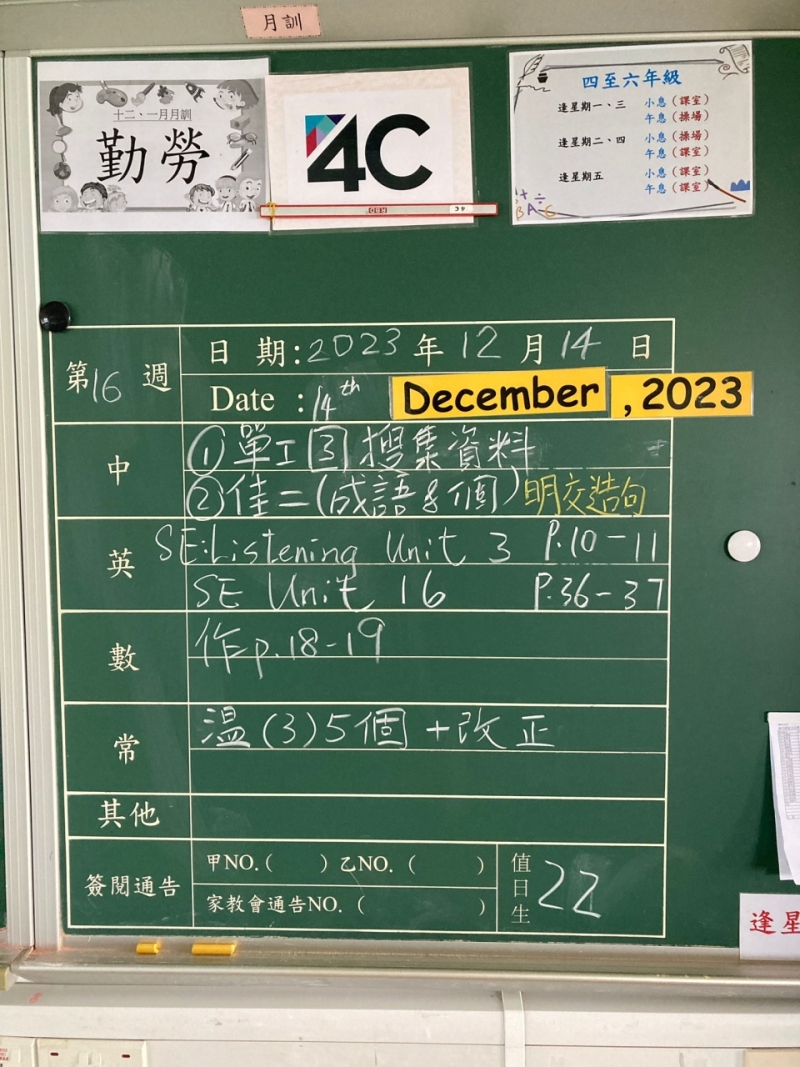 月訓
十二、一月月訓
勤勞
4C
四至六年級
逢星期一、三 小息(課室)
午息(操場)
逢星期二、四 小息(操場)
午息(課室)
逢星期五 小息(課室)
午息(課室)
第16週
日期:2023年12月14日
Date : 14th December , 2023
中
①單工3搜集資料
②佳二(成語8個)明交造句
英
SE:Listening Unit 3 P.10-11
SE Unit 16 P.36-37
數
作p.18-19
常
溫(3)5個+改正
其他
簽閱通告
甲NO.( ) 乙NO.( )
家教會通告NO.( )
值日生 22
逢星